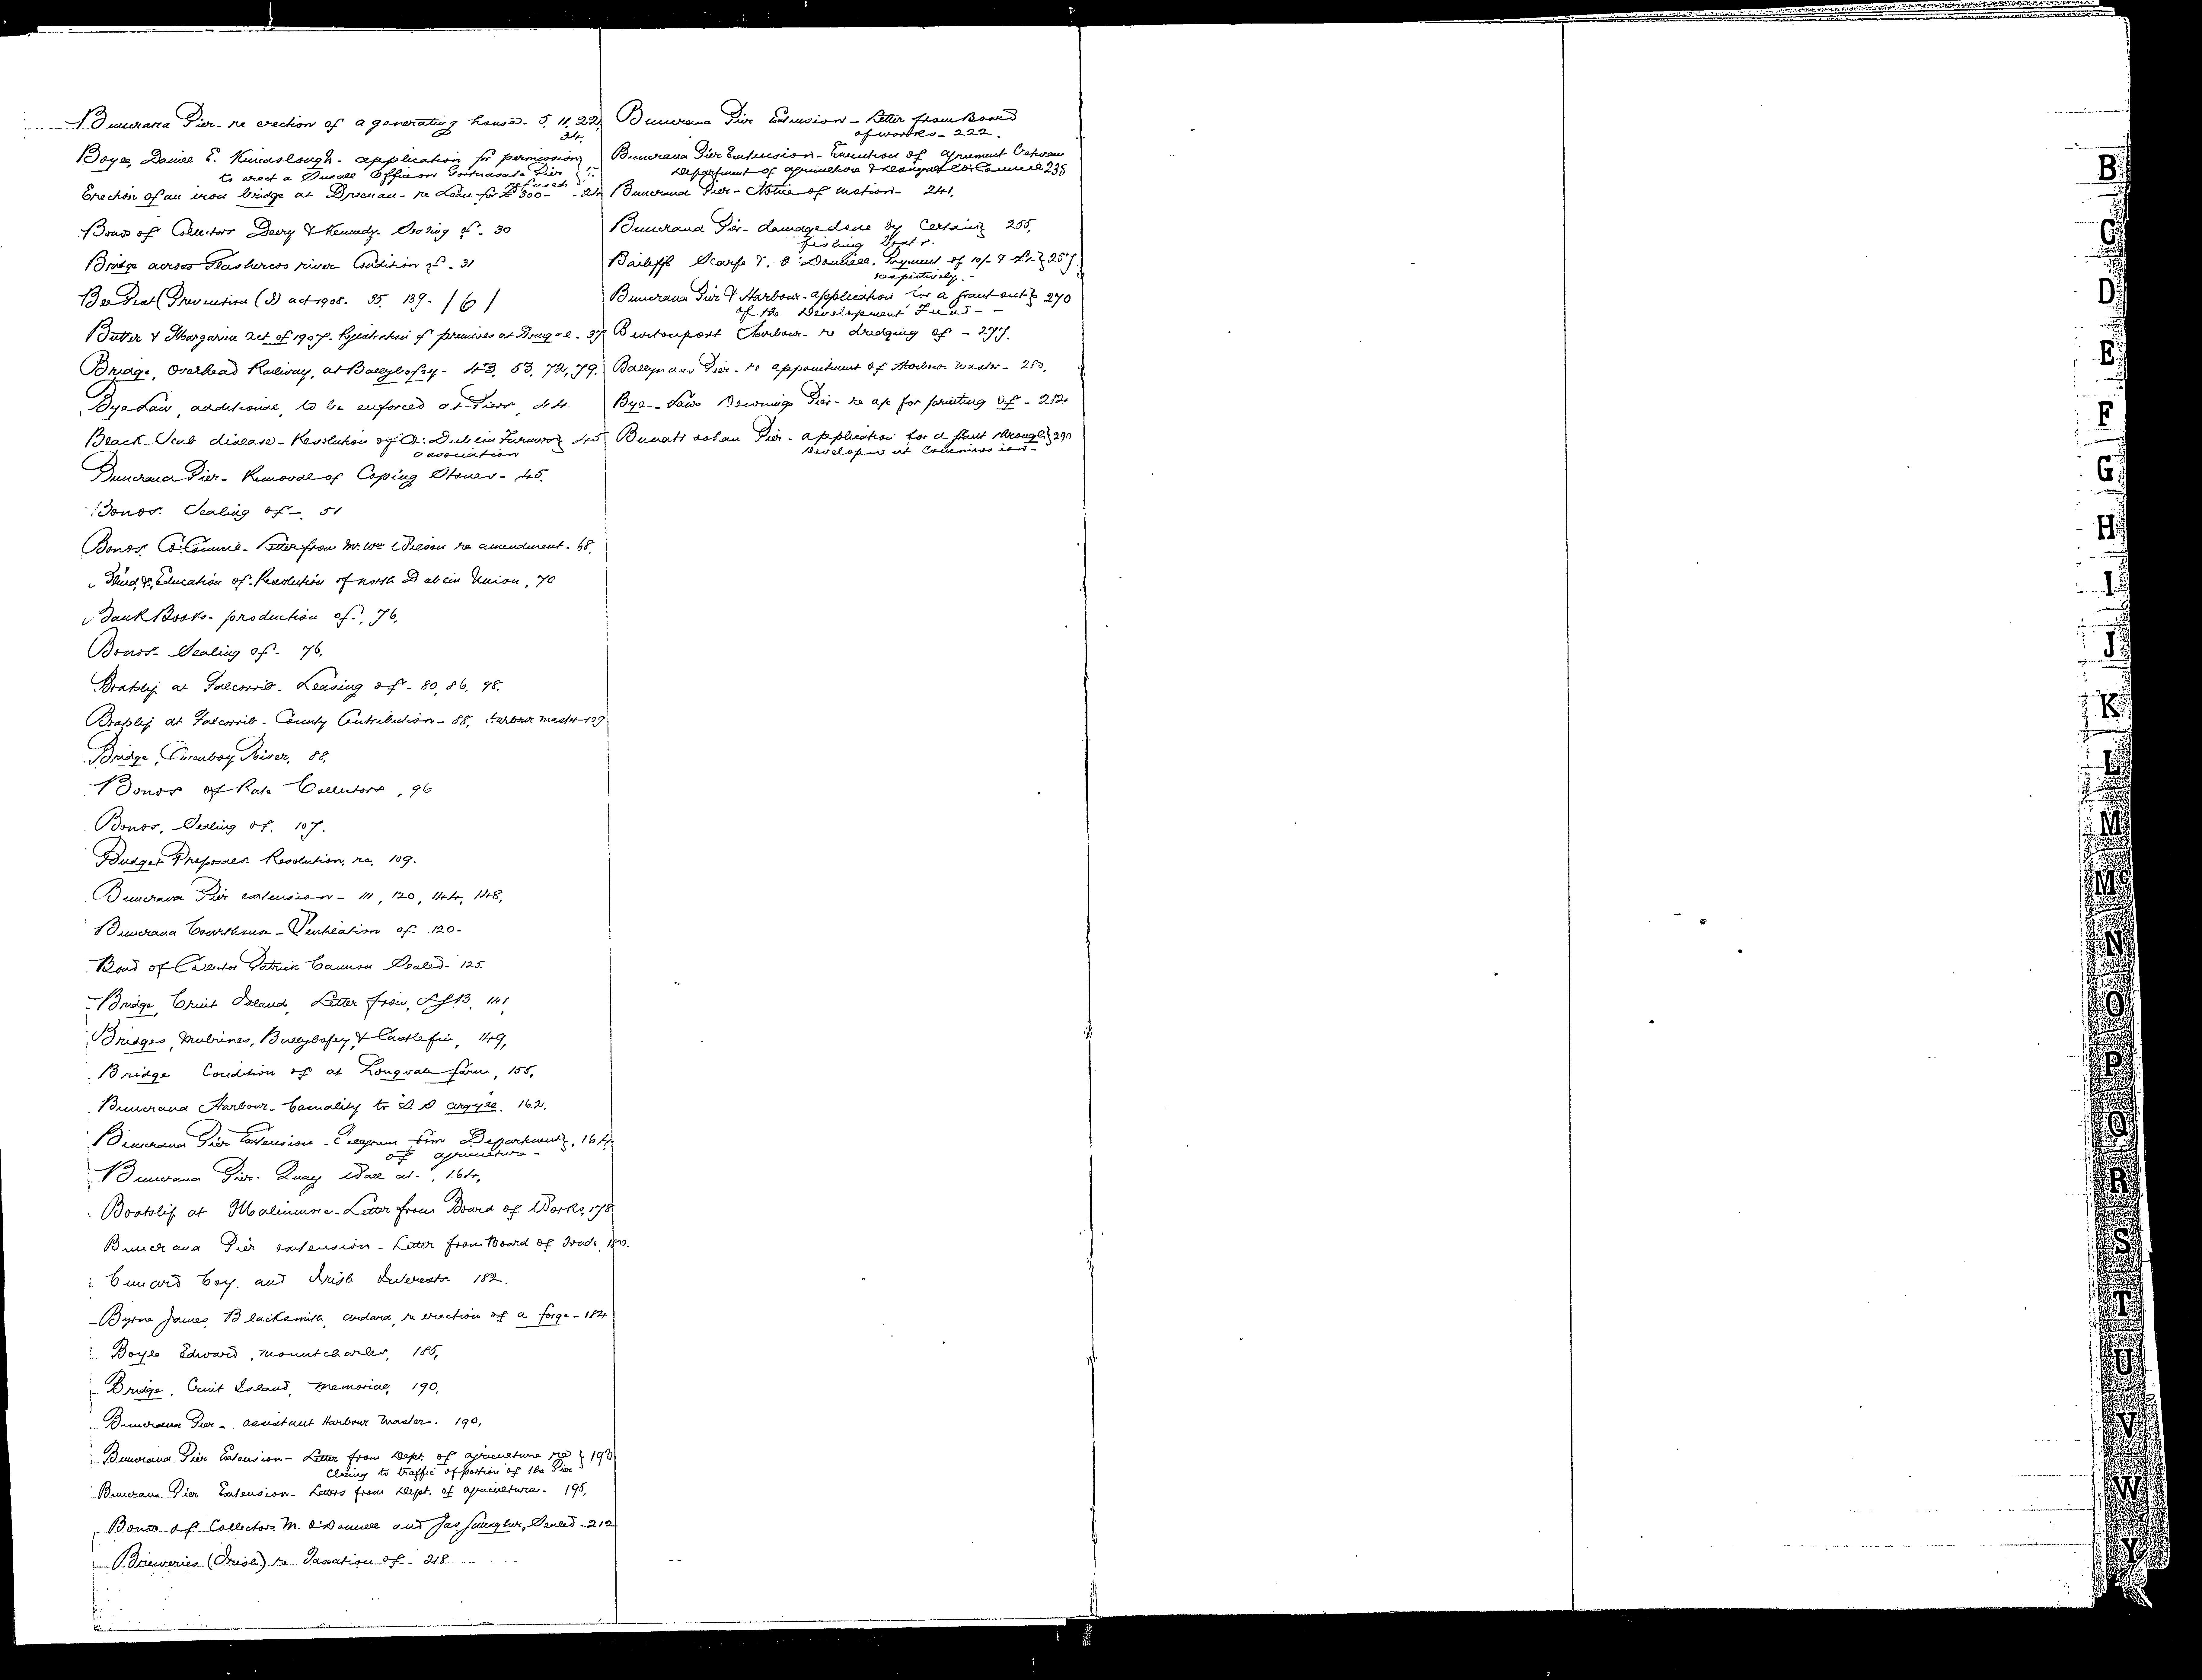 Buncrana Pier - re erection of a generating house - 5, 11, 22,
24.
Boyle, Daniel E. Kincaslough - application for permission
to erect a Small Office on Gortnasate Pier
refused
Erection of an iron bridge at Breenan - re Loan for £300 - 24
Bonds of Collectors Deery & Kennedy. Sealing of - 30
Bridge across river Condition of - 31
Bee Pest (Prevention (I) act 1908. 35. 139 - 161
Butter & Margarine act of 1907 - Registration of premises at - 37
Bridge, Overhead Railway, at Ballybofey - 43, 53, 72, 79.
Bye Law, additional, to be enforced at Piers, 44.
Black-Scab disease - Resolution of Co: Dublin Farmers } 45
association
Buncrana Pier - Removal of Coping Stones - 45.
Bonds. Sealing of - 51
Bonds. Co: Council - Letter from Mr. Wm Wilson re amendment - 68.
Blind, Education of - Resolution of North Dublin Union, 70
Bank Books - production of, 76,
Bonds - Sealing of - 76.
Boatslip at Falcorrib - Leasing of - 80, 86, 98.
Boatslip at Falcorrib - County Contribution - 88, Harbour master 129
Bridge, River, 88.
Bonds of Rate Collectors, 96
Bonds, Sealing of. 107.
Budget Proposals Resolution, re, 109.
Buncrana Pier extension - 111, 120, 144, 148,
Buncrana Courthouse - Ventilation of. 120 -
Bond of Collector Patrick Cannon Sealed - 125.
Bridge, Cruit Island, Letter from, LGB. 141,
Bridges, Mulrines, Ballybofey, & Castlefin, 149,
Bridge Condition of at Longvale farm, 155,
Buncrana Harbour - Casualty to "S S Argyle, 162.
Buncrana Pier Extension - Telegram from Department }, 164
of agriculture -
Buncrana Pier - Quay Wall at -, 164,
Boatslip at Malinmore - Letter from Board of Works, 178
Buncrana Pier extension - Letter from Board of Trade, 180.
Cunard Coy. and Irish Interests 182.
Byrne James, Blacksmith, Ardara, re erection of a forge - 184
Boyle Edward, Mountcharles, 185,
Bridge, Cruit Island, Memorial, 190,
Buncrana Pier - assistant Harbour Master. 190,
Buncrana Pier Extension - Letter from Dept. of agriculture re } 193
Closing to traffic of portion of the Pier
Buncrana Pier Extension - Letters from Dept. of agriculture. 195,
Bonds of Collectors M. O'Donnell and Jas Gallagher, Sealed. 212
Breweries (Irish) re Taxation of 218
Buncrana Pier Extension - Letter from Board
of works - 222.
Buncrana Pier Extension - Execution of agreement between
Department of agriculture & Donegal Co: Council 238
Buncrana Pier - Notice of motion - 241,
Buncrana Pier - damage done by Certain } 255,
fishing boats.
Bailiffs Scarfe & O'Donnell, Payment of 10/- & £1 - } 257
respectively. -
Buncrana Pier & Harbour - application for a grant out } 270
of the Development Fund - -
Burtonport Harbour - re dredging of - 277.
Ballyness Pier - re appointment of Harbour Master - 280,
Bye-Laws Downings Pier - re a/c for printing of - 282
Bunatroohan Pier - application for a grant through } 290
Development Commission -
B
C
D
E
F
G
H
I
J
K
L
M
Mc
N
O
P
Q
R
S
T
U
V
W
Y